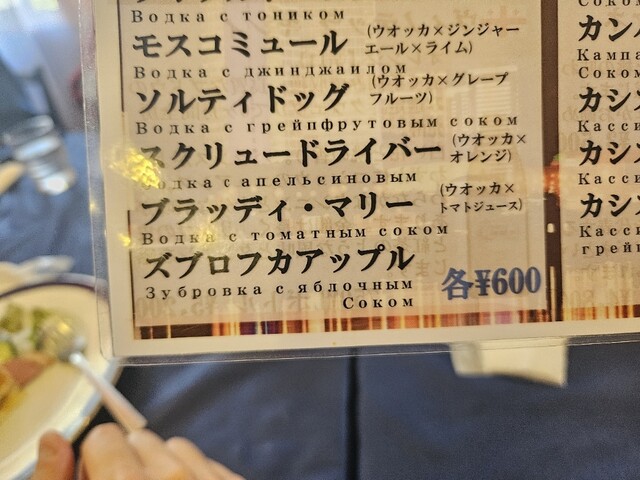 Водка с тоником
モスコミュール (ウオッカ×ジンジャー
エール×ライム)
Водка с джинджаилом
ソルティドッグ (ウオッカ×グレープ
フルーツ)
Водка с грейпфрутовым соком
スクリュードライバー (ウオッカ×
オレンジ)
Водка с апельсиновым
ブラッディ・マリー (ウオッカ×
トマトジュース)
Водка с томатным соком
ズブロフカアップル
Зубровка с яблочным
Соком
各¥600
カン
Кампа
Соком
カシ
Касси
カシ
Касси
カシ
Касси
грейп